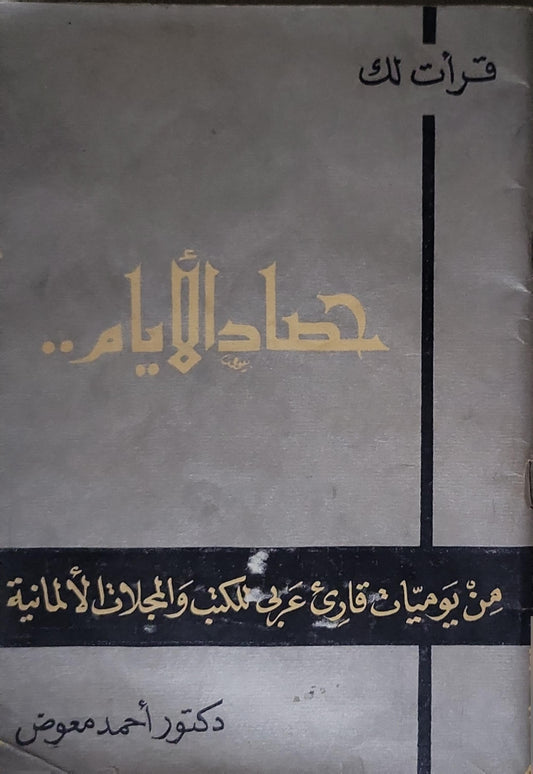 قرأت لك
حصاد الأيام..
مِنْ يَوميّات قارئ عَربى للكتب وَالمجلات الألمانية
دكتور أحمد معوض